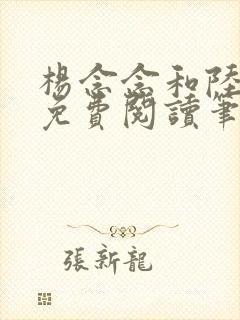 楊念念和陸
免費閱讀筆
張新龍